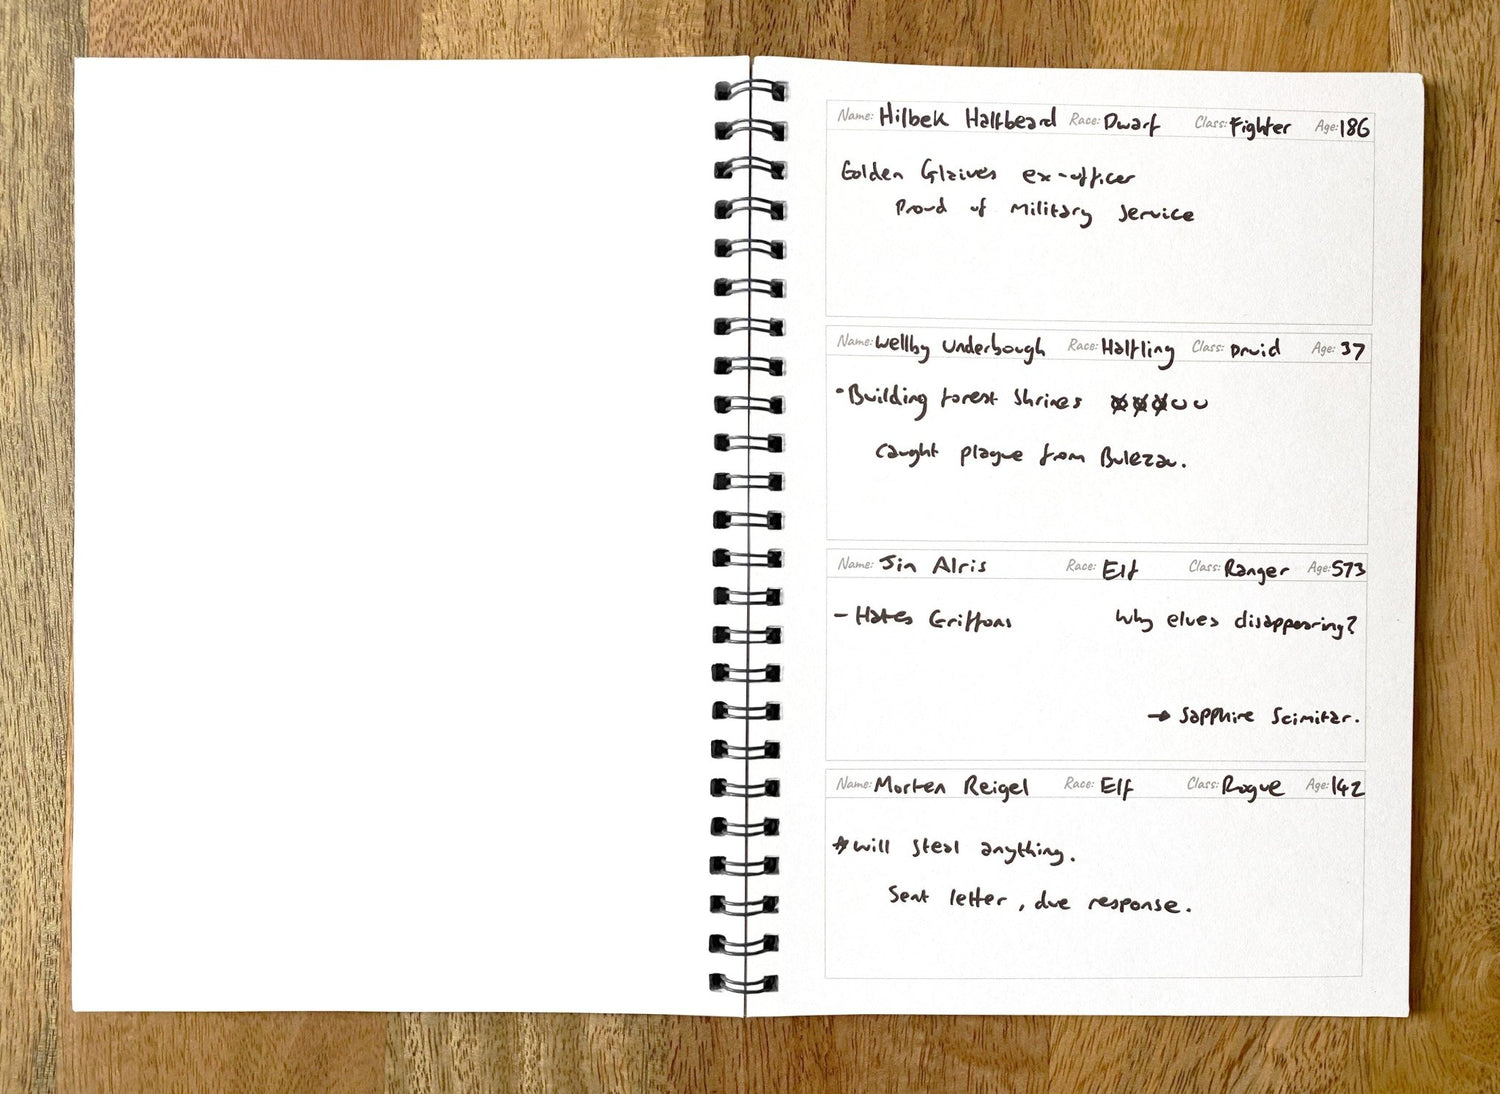 Name: Hilbek Halfbeard Race: Dwarf Class: Fighter Age: 186
Golden Glaives ex-officer
Proud of military service
Name: Wellby Underbough Race: Halfling Class: Druid Age: 37
Building forest shrines
Caught plague from Bulezau.
Name: Jin Alris Race: Elf Class: Ranger Age: 573
- Hates Griffons Why elves disappearing?
→ Sapphire Scimitar.
Name: Morten Reigel Race: Elf Class: Rogue Age: 142
Will steal anything.
Sent letter, due response.